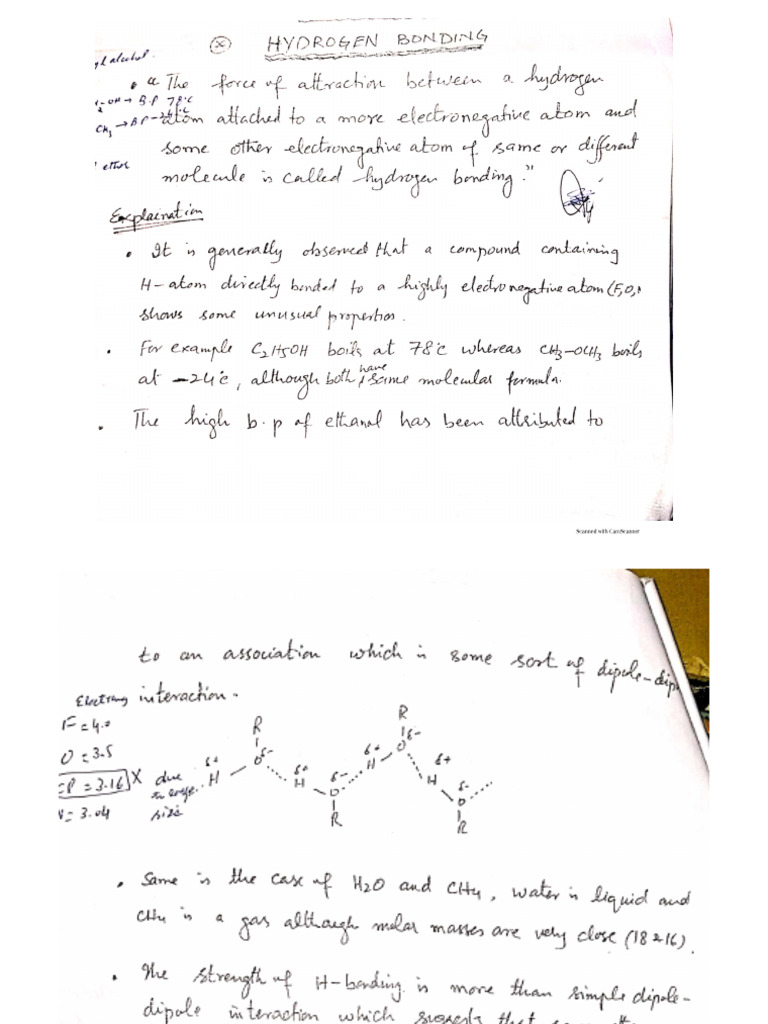 HYDROGEN BONDING
yl alcohol.
• "The force of attraction between a hydrogen
-OH → B.P 78°C
atom attached to a more electronegative atom and
CH3 → BP -24°C
some other electronegative atom of same or different
ether
molecule is called hydrogen bonding."
Explaination
• It is generally observed that a compound containing
H-atom directly bonded to a highly electronegative atom (F,O,
shows some unusual properties.
• For example C2H5OH boils at 78°C whereas CH3-OCH3 boils
at -24°C, although both have same molecular formula.
• The high b.p of ethanol has been attributed to
Scanned with CamScanner
to an association which is some sort of dipole-dip
interaction.
F = 4.0
O = 3.5
= 3.16 X due
size
= 3.04
R R
O δ- O δ-
δ+ H δ+ H δ+ H δ+ H
δ- O δ- O
R R
• Same is the case of H2O and CH4, water is liquid and
CH4 is a gas although molar masses are very close (18 & 16).
• The strength of H-bonding is more than simple dipole-
dipole interaction which suggests that